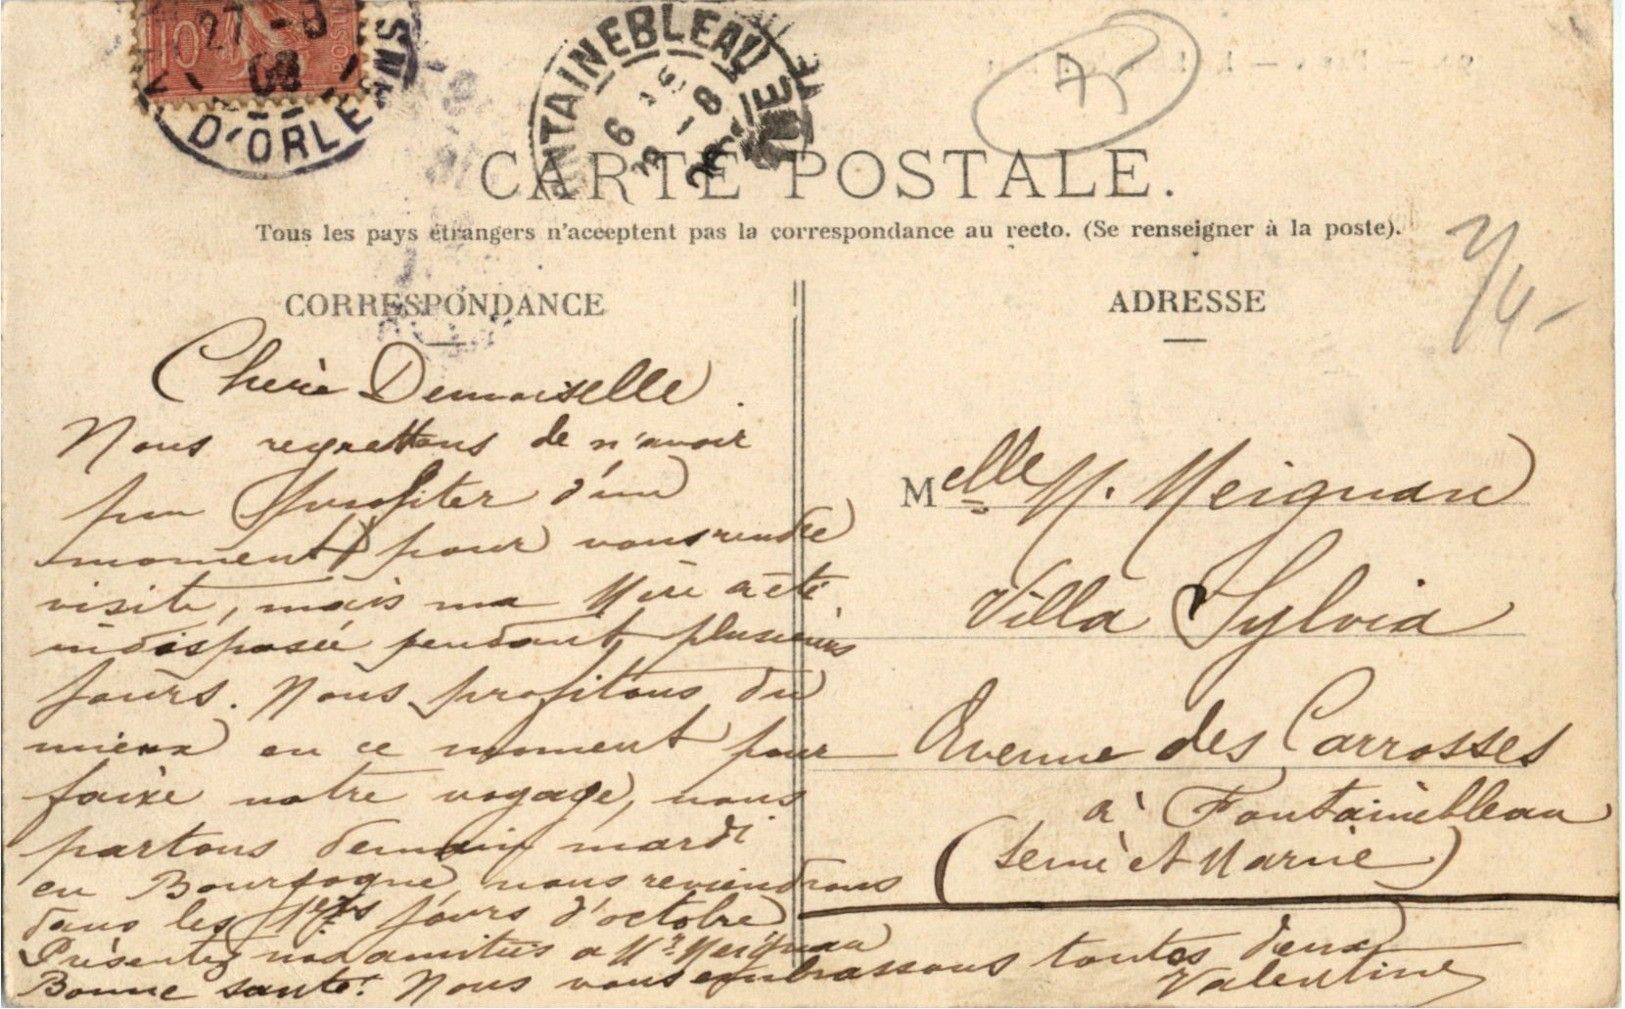 10c
POSTES
27-8
08
D'ORLEANS
FONTAINEBLEAU
28-8
CARTE POSTALE.
Tous les pays étrangers n'acceptent pas la correspondance au recto. (Se renseigner à la poste).
CORRESPONDANCE
Chère Demoiselle.
Nous regrettons de n'avoir
pu profiter d'un
moment pour vous rendre
visite, mais ma Mère a été
indisposée pendant plusieurs
jours. Nous profitons du
mieux en ce moment pour
faire notre voyage, nous
partons demain mardi
en Bourgogne, nous reviendrons
dans les 1ers jours d'octobre
Présentez nos amitiés a Mr. Meignan
Bonne santé. Nous vous embrassons toutes deux
Valentine
ADRESSE
Melle M. Meignan
Villa Sylvia
Avenue des Carrosses
à Fontainebleau
(Seine et Marne)